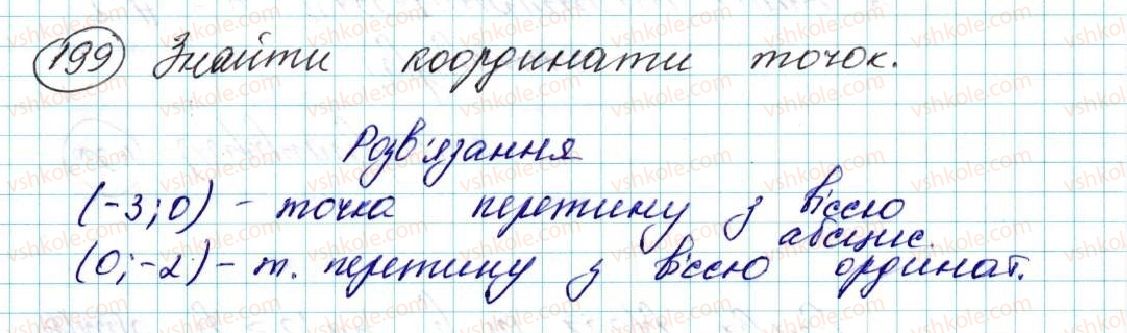 199 Знайти координати точок.
Розв'язання
(-3;0) - точка перетину з віссю абсцис.
(0;-2) - т. перетину з віссю ординат.
vshkole.com